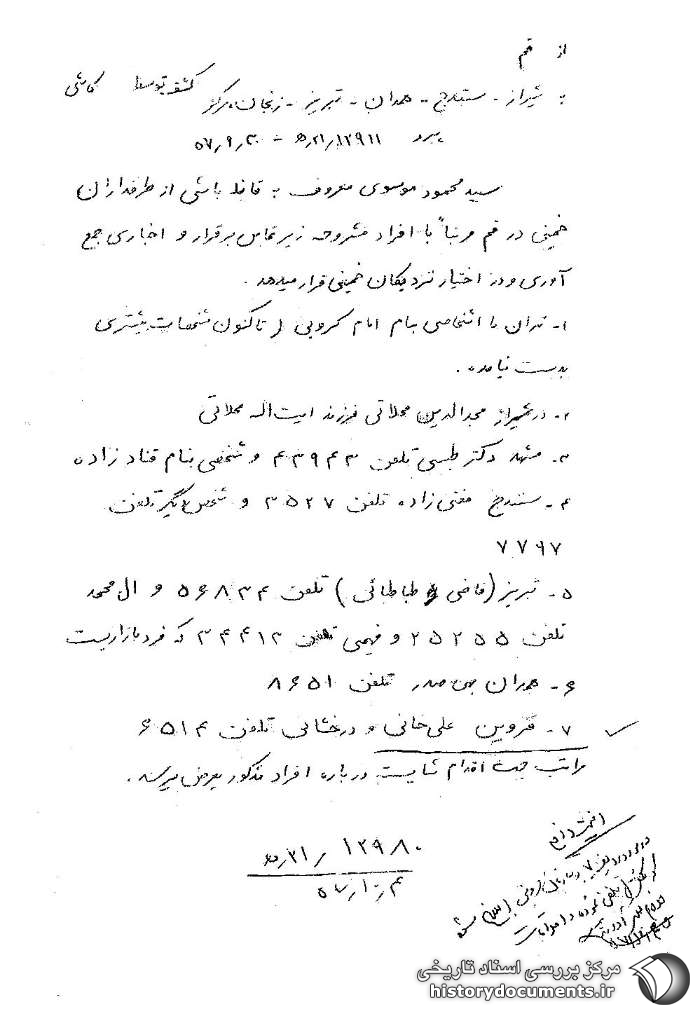 از قم
به شیراز - سنندج - همدان - تبریز - زنجان، مرکز کشف توسط کاشی
پیرو ۱۲۹۱۱/ ۲۱ه - ۵۷٫۹٫۳۰
سید محمود موسوی معروف به قافله باشی از طرفداران
خمینی در قم مرتباً با افراد مشروحه زیر تماس برقرار و اخباری جمع
آوری و در اختیار نزدیکان خمینی قرار میدهد .
۱- تهران با اشخاصی بنام امام کروبی ( تاکنون مشخصات بیشتری
بدست نیامده .
۲- در شیراز مجدالدین محلاتی فرزند ایت اله محلاتی
۳- مشهد دکتر طبسی تلفن ۴۳۹۴۳ و شخصی بنام قناد زاده
۴- سنندج مفتی زاده تلفن ۳۵۲۷ و شخص دیگر تلفن
۷۷۹۷
۵- تبریز (قاضی طباطبائی ) تلفن ۵۶۸۳۴ و ال محمد
تلفن ۲۵۲۵۵ و فهیمی تلفن ۳۴۴۱۳ که فرد بازاریست
۶- همدان صدر تلفن ۸۶۵۱
۷- قزوین علی خانی و درخشانی تلفن ۶۵۱۴
مراتب جهت اقدام شایسته درباره افراد مذکور بعرض میرسد .
۱۲۹۸۰ / ۲۱ه
مرکز بررسی اسناد تاریخی
historydocuments.ir